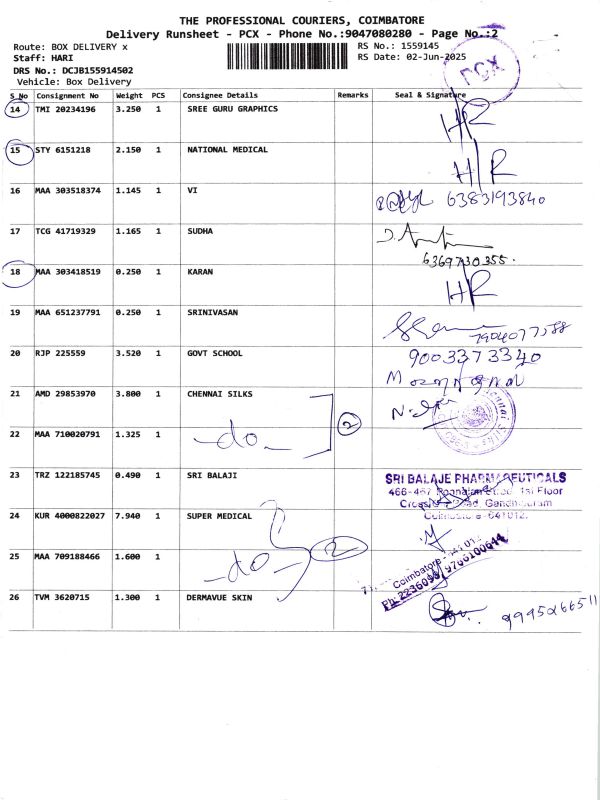 THE PROFESSIONAL COURIERS, COIMBATORE
Delivery Runsheet - PCX - Phone No.:9047080280 - Page No.:2
Route: BOX DELIVERY x
Staff: HARI
DRS No.: DCJB155914502
Vehicle: Box Delivery
RS No.: 1559145
RS Date: 02-Jun-2025
PCX
S_No Consignment No Weight PCS Consignee Details Remarks Seal & Signature
14 TMI 20234196 3.250 1 SREE GURU GRAPHICS HR
15 STY 6151218 2.150 1 NATIONAL MEDICAL HR
16 MAA 303518374 1.145 1 VI 6383193840
17 TCG 41719329 1.165 1 SUDHA
6369730355.
18 MAA 303418519 0.250 1 KARAN HR
19 MAA 651237791 0.250 1 SRINIVASAN
7904077588
20 RJP 225559 3.520 1 GOVT SCHOOL 9003373340
21 AMD 29853970 3.800 1 CHENNAI SILKS
22 MAA 710020791 1.325 1 -do- 2
23 TRZ 122185745 0.490 1 SRI BALAJI SRI BALAJE PHARMACEUTICALS
466-467 Street, 1st Floor
Road, Gandhipuram
Coimbatore-641012.
24 KUR 4000822027 7.940 1 SUPER MEDICAL
25 MAA 709188466 1.600 1 -do- 2
Coimbatore-641012
Ph: 2236099, 9766100644
26 TVM 3620715 1.300 1 DERMAVUE SKIN 9995266511